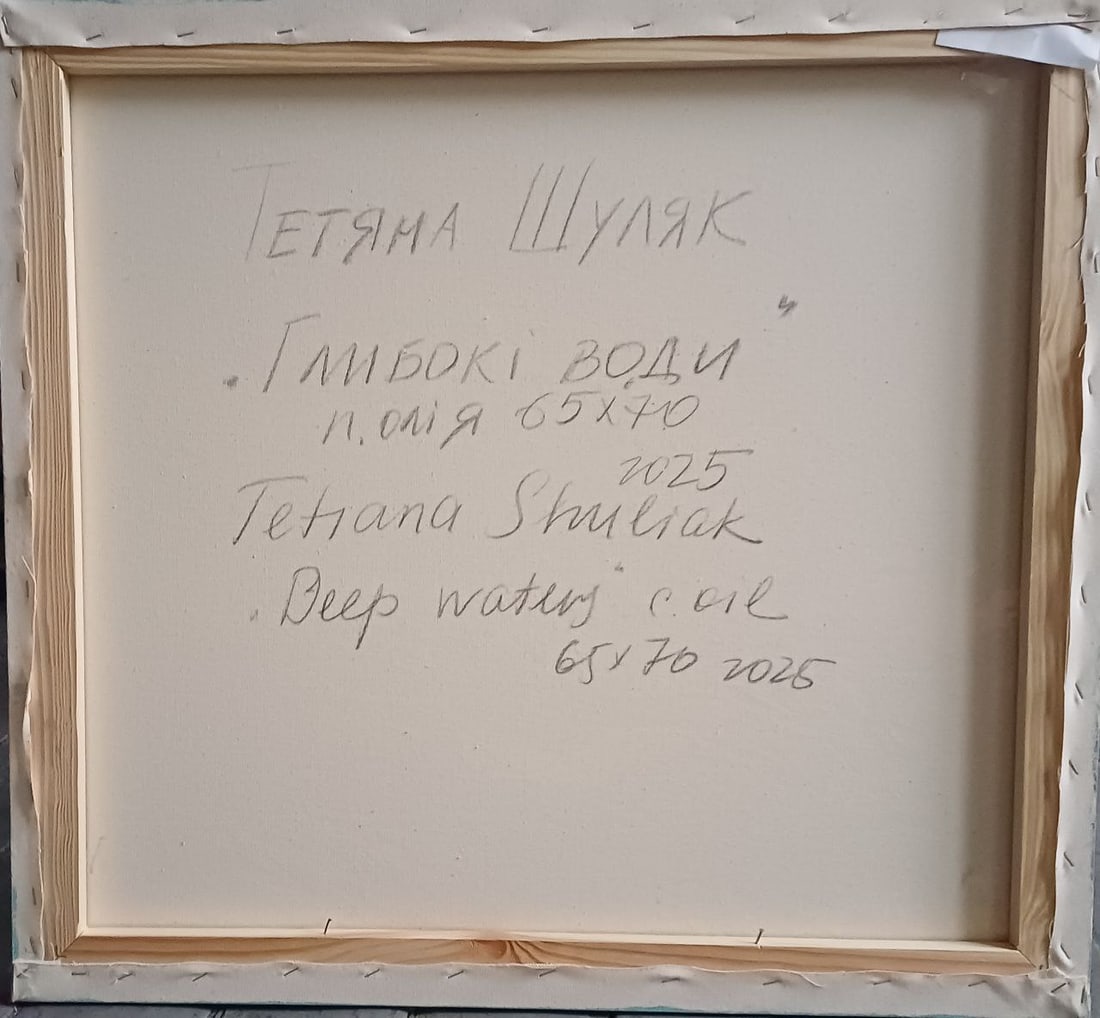 Тетяна Шуляк
"Глибокі води"
п. олія 65х70
2025
Tetiana Shuliak
"Deep waters" c. oil
65x70 2025